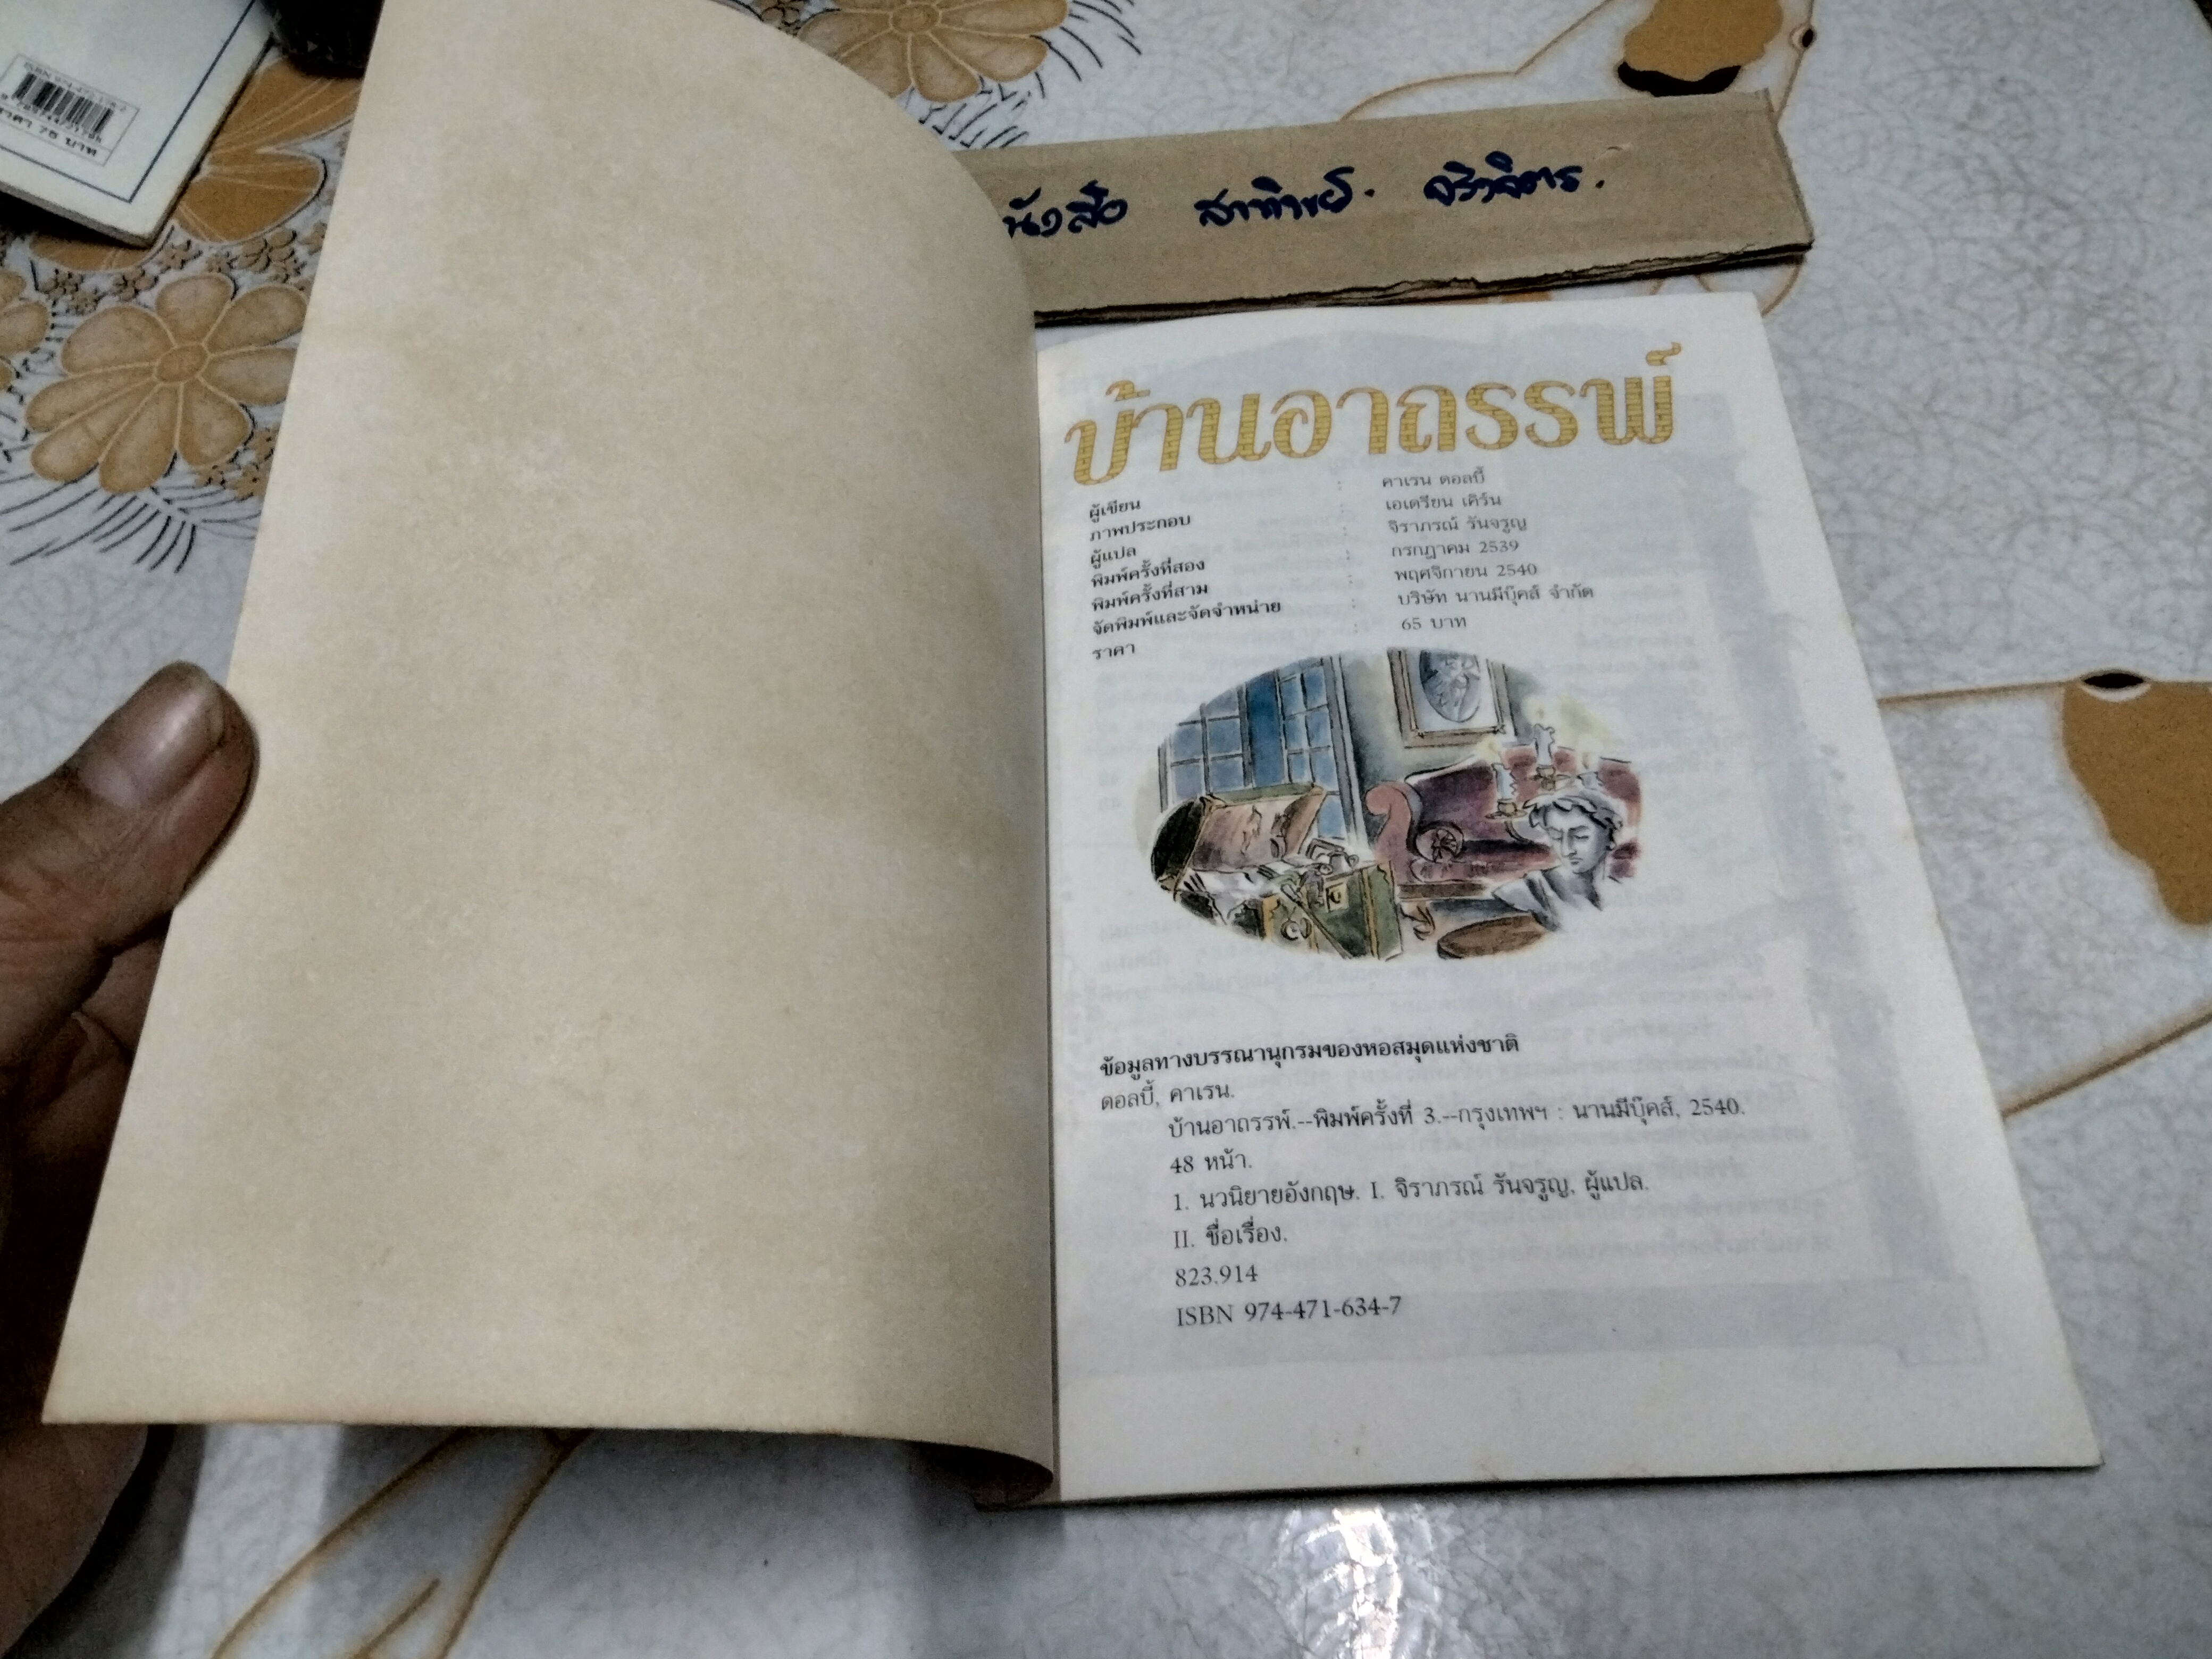 บ้านอาถรรพ์
ผู้เขียน : คาเรน ดอลบี้
ภาพประกอบ : เอเดรียน เคิร์น
ผู้แปล : จิราภรณ์ รันจรูญ
พิมพ์ครั้งที่สอง : กรกฎาคม 2539
พิมพ์ครั้งที่สาม : พฤศจิกายน 2540
จัดพิมพ์และจัดจำหน่าย : บริษัท นานมีบุ๊คส์ จำกัด
ราคา : 65 บาท
ข้อมูลทางบรรณานุกรมของหอสมุดแห่งชาติ
ดอลบี้, คาเรน.
บ้านอาถรรพ์.--พิมพ์ครั้งที่ 3.--กรุงเทพฯ : นานมีบุ๊คส์, 2540.
48 หน้า.
1. นวนิยายอังกฤษ. I. จิราภรณ์ รันจรูญ, ผู้แปล.
II. ชื่อเรื่อง.
823.914
ISBN 974-471-634-7
75 บาท